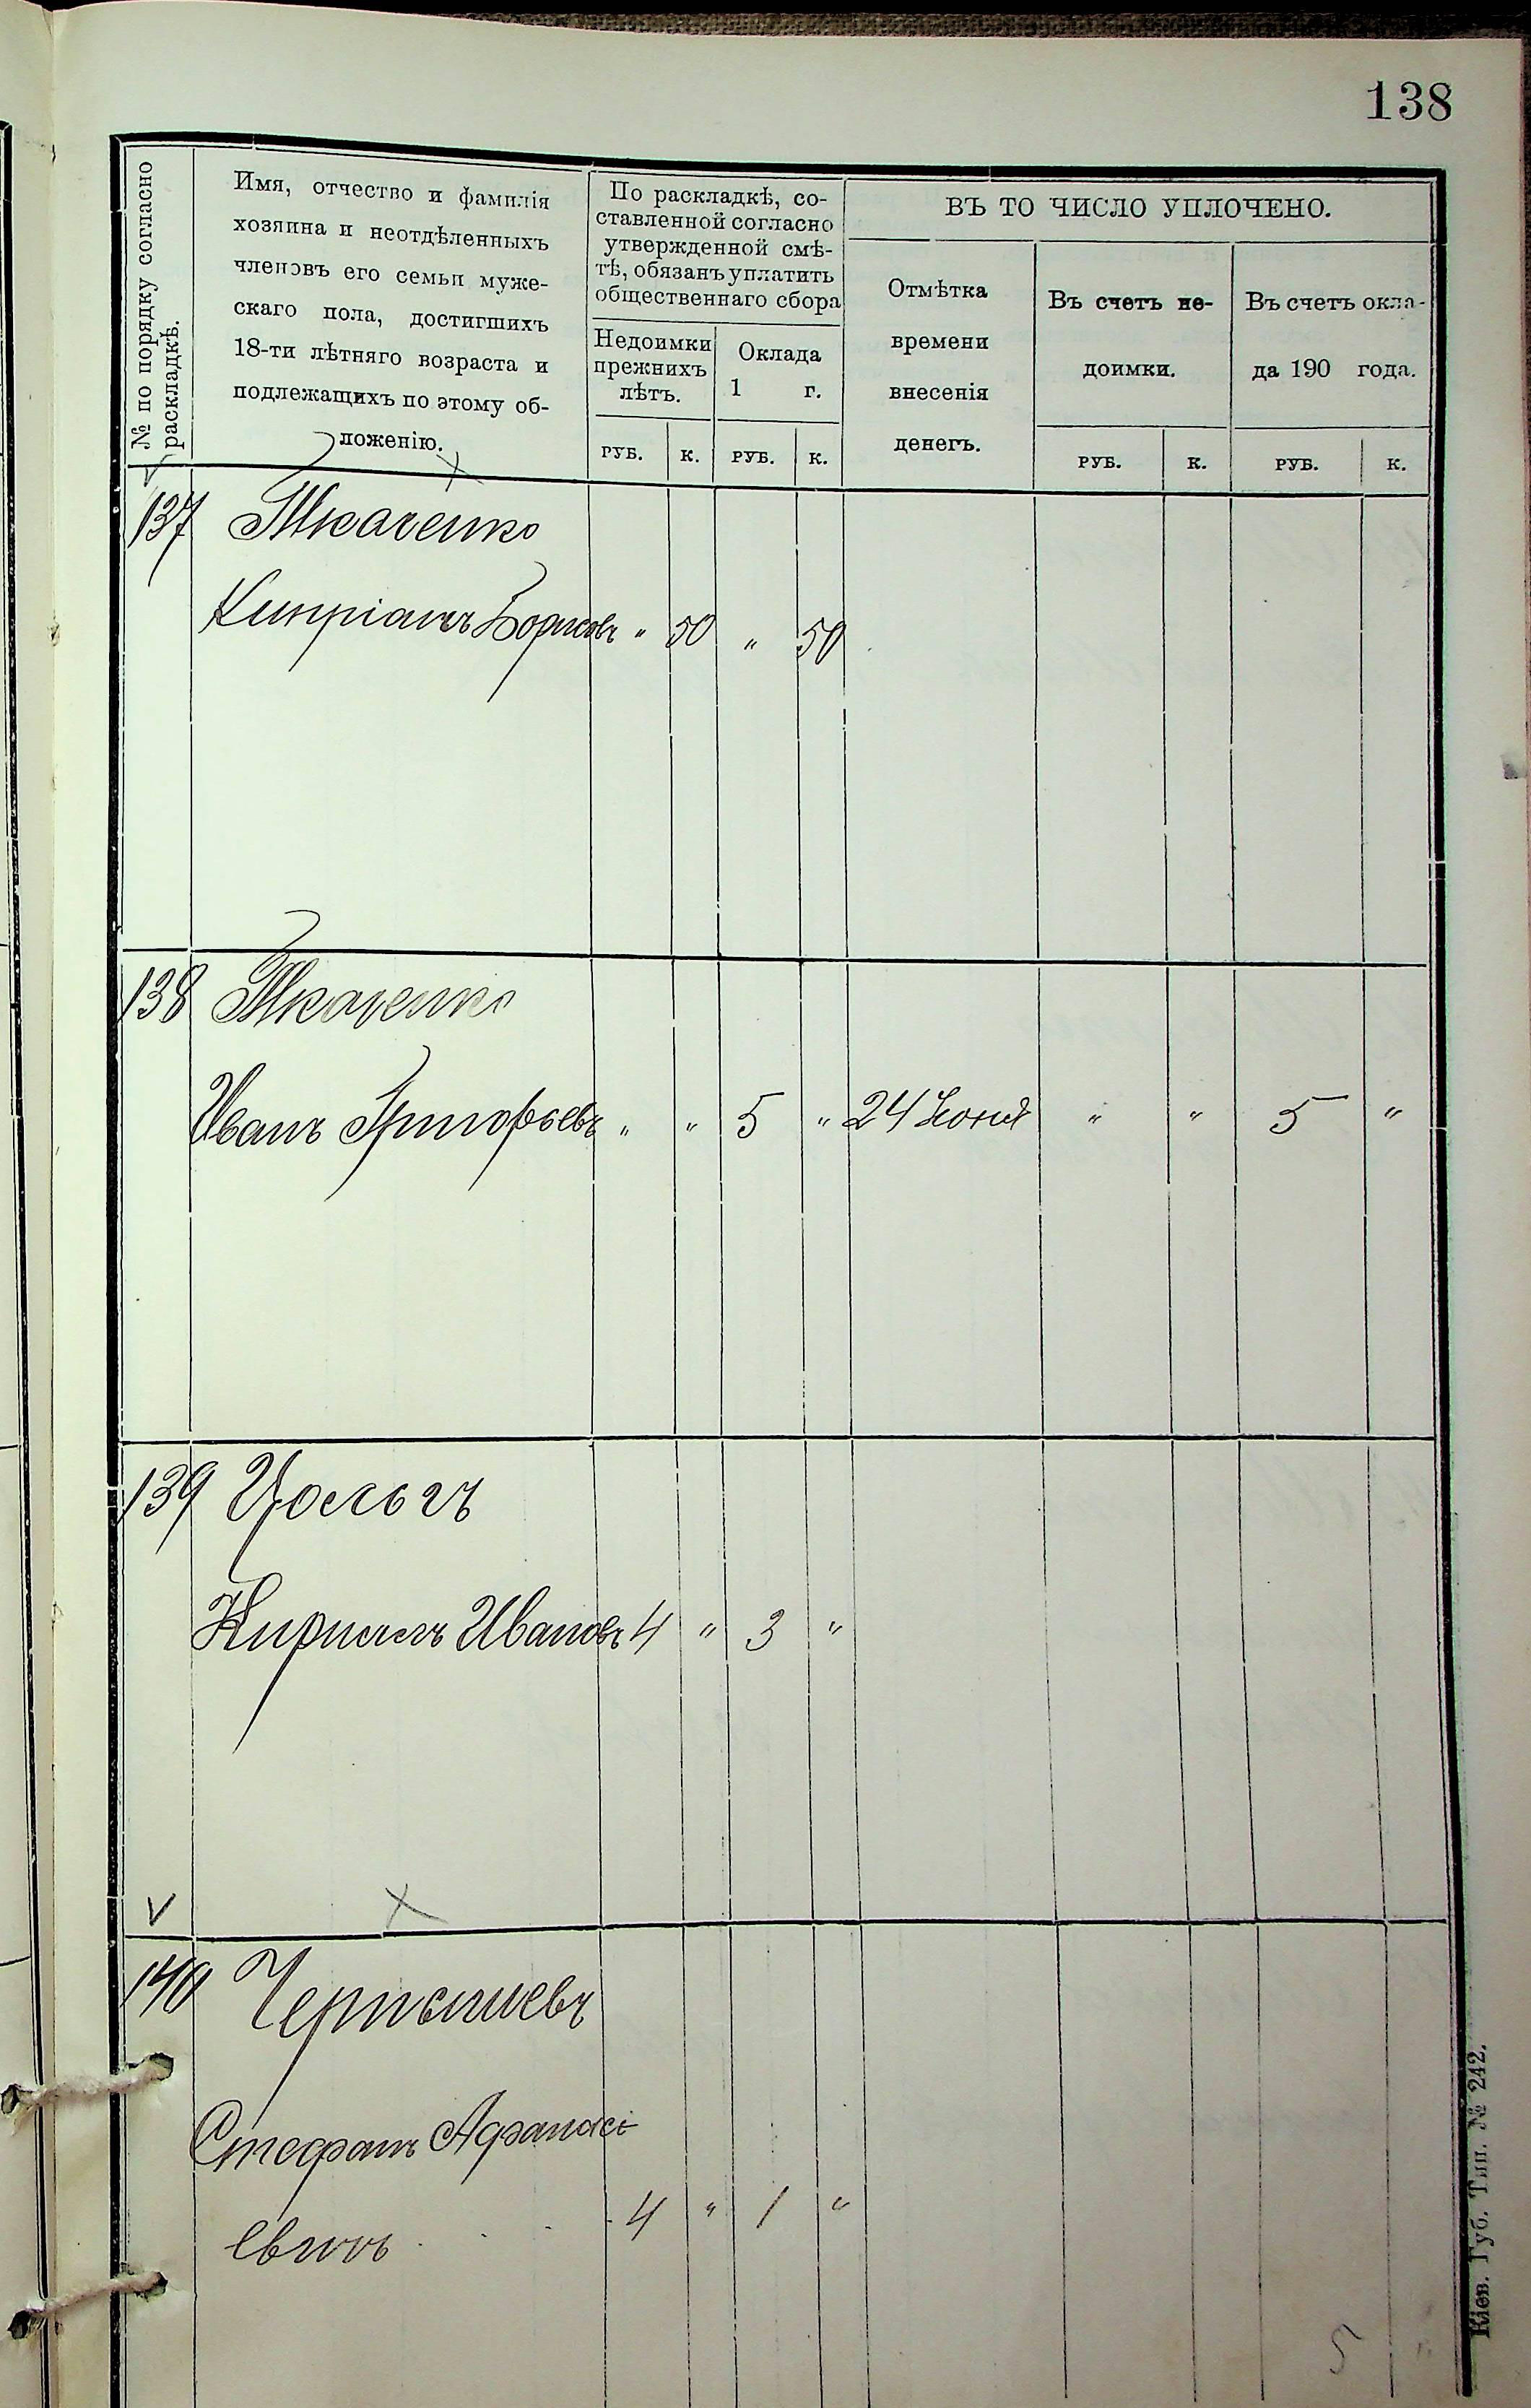 138
№ по порядку согласно
раскладкѣ.
Имя, отчество и фамилія
хозяина и неотдѣленныхъ
членовъ его семьи муже-
скаго пола, достигшихъ
18-ти лѣтняго возраста и
подлежащихъ по этому об-
ложенію.
По раскладкѣ, со-
ставленной согласно
утвержденной смѣ-
тѣ, обязанъ уплатить
общественнаго сбора
Недоимки
прежнихъ
лѣтъ.
Оклада
1 г.
ВЪ ТО ЧИСЛО УПЛОЧЕНО.
Отмѣтка
времени
внесенія
денегъ.
Въ счетъ не-
доимки.
Въ счетъ окла-
да 190 года.
РУБ. К. РУБ. К. РУБ. К. РУБ. К.
137 Ткаченко
Кипріанъ " 50 " 50
138 Ткаченко
Иванъ Григорьевъ " " 5 " 24 Іюня " " 5 "
139
Кириллъ Ивановъ 4 " 3 "
140 Чернышевъ
Стефанъ Афанасі
евичъ 4 " 1 "
5 "
Кіев. Губ. Тип. № 242.